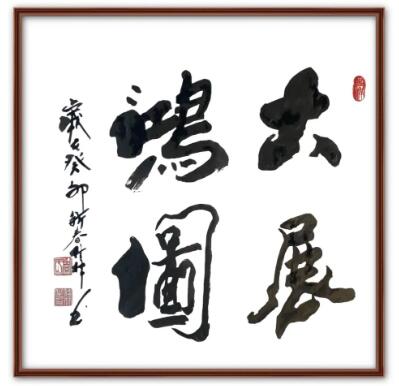 大展
鴻圖
歲在癸卯新春